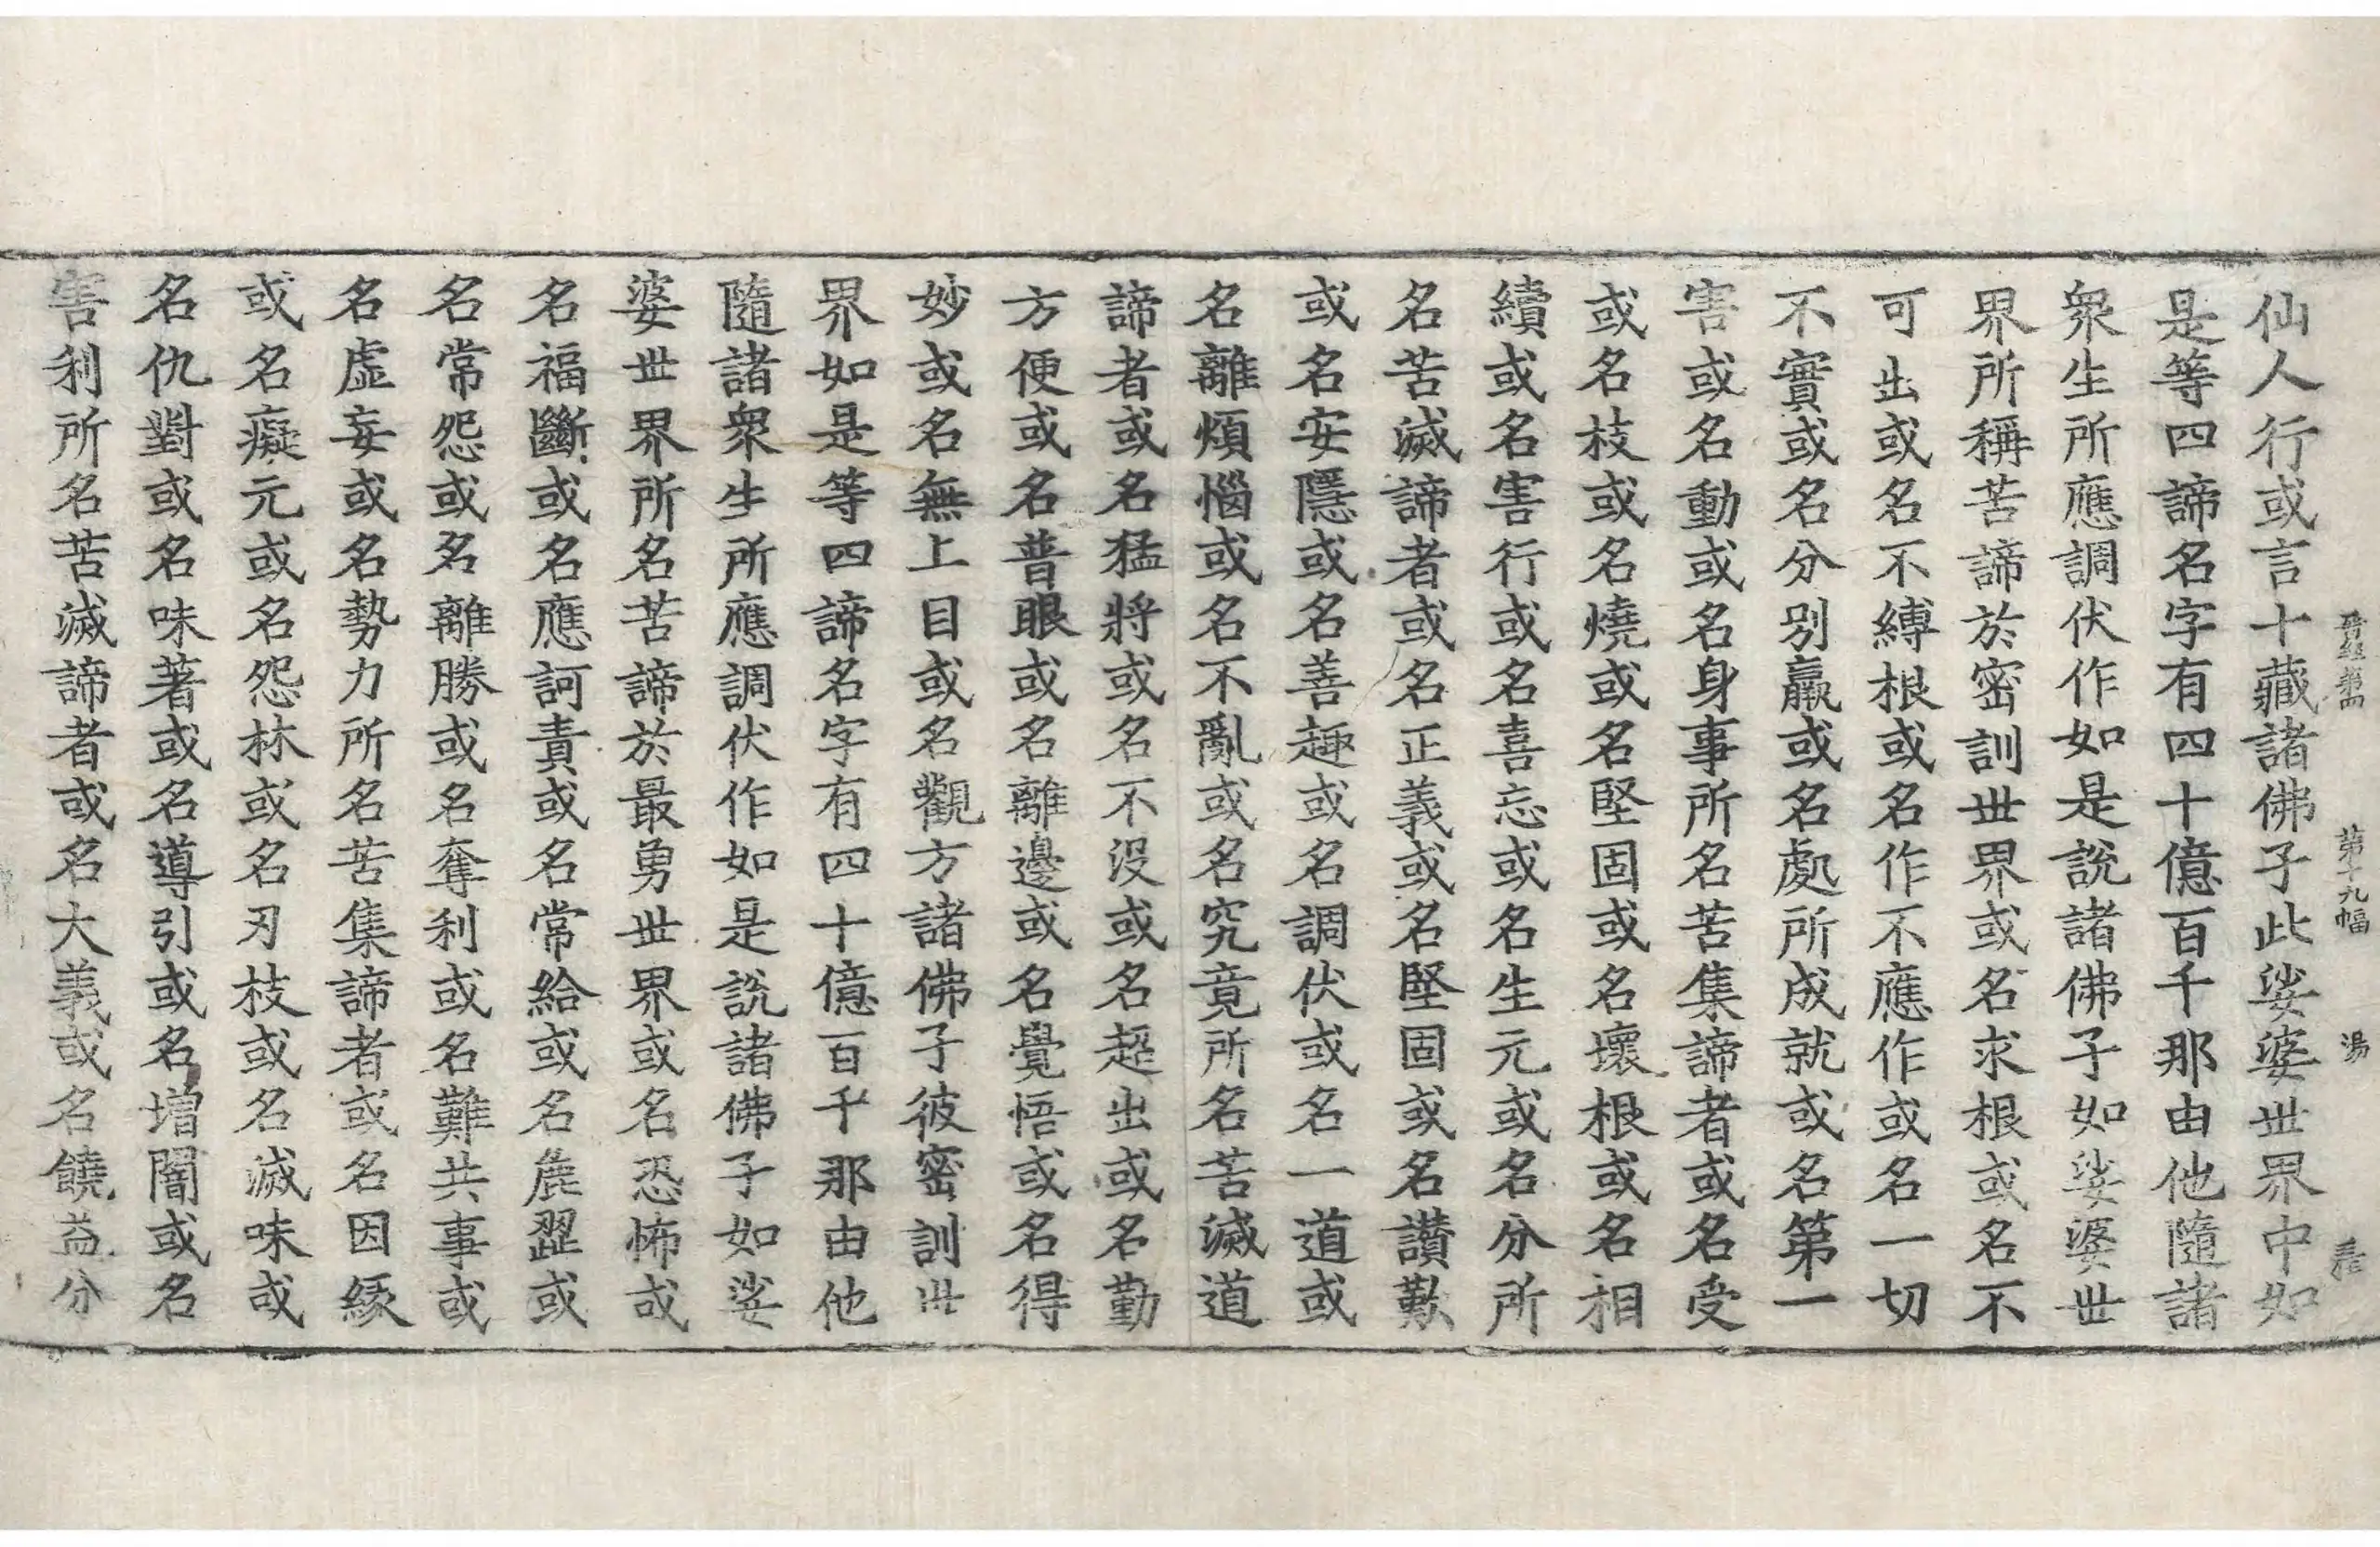 晉經第四 第十九幅 湯
仙人行或言十藏諸佛子此娑婆世界中如
是等四諦名字有四十億百千那由他隨諸
衆生所應調伏作如是說諸佛子如娑婆世
界所稱苦諦於密訓世界或名求根或名不
可出或名不縛根或名作不應作或名一切
不實或名分別羸或名處所成就或名第一
害或名動或名身事所名苦集諦者或名受
或名枝或名燒或名堅固或名壞根或名相
續或名害行或名喜忘或名生元或名分所
名苦滅諦者或名正義或名堅固或名讃歎
或名安隱或名善趣或名調伏或名一道或
名離煩惱或名不亂或名究竟所名苦滅道
諦者或名猛將或名不沒或名超出或名勤
方便或名普眼或名離邊或名覺悟或名得
妙或名無上目或名觀方諸佛子彼密訓世
界如是等四諦名字有四十億百千那由他
隨諸衆生所應調伏作如是說諸佛子如娑
婆世界所名苦諦於最勇世界或名恐怖或
名福斷或名應訶責或名常給或名麁澀或
名常怨或名離勝或名奪利或名難共事或
名虛妄或名勢力所名苦集諦者或名因緣
或名癡元或名怨林或名刃枝或名滅味或
名仇對或名味著或名導引或名增闇或名
害利所名苦滅諦者或名大義或名饒益分